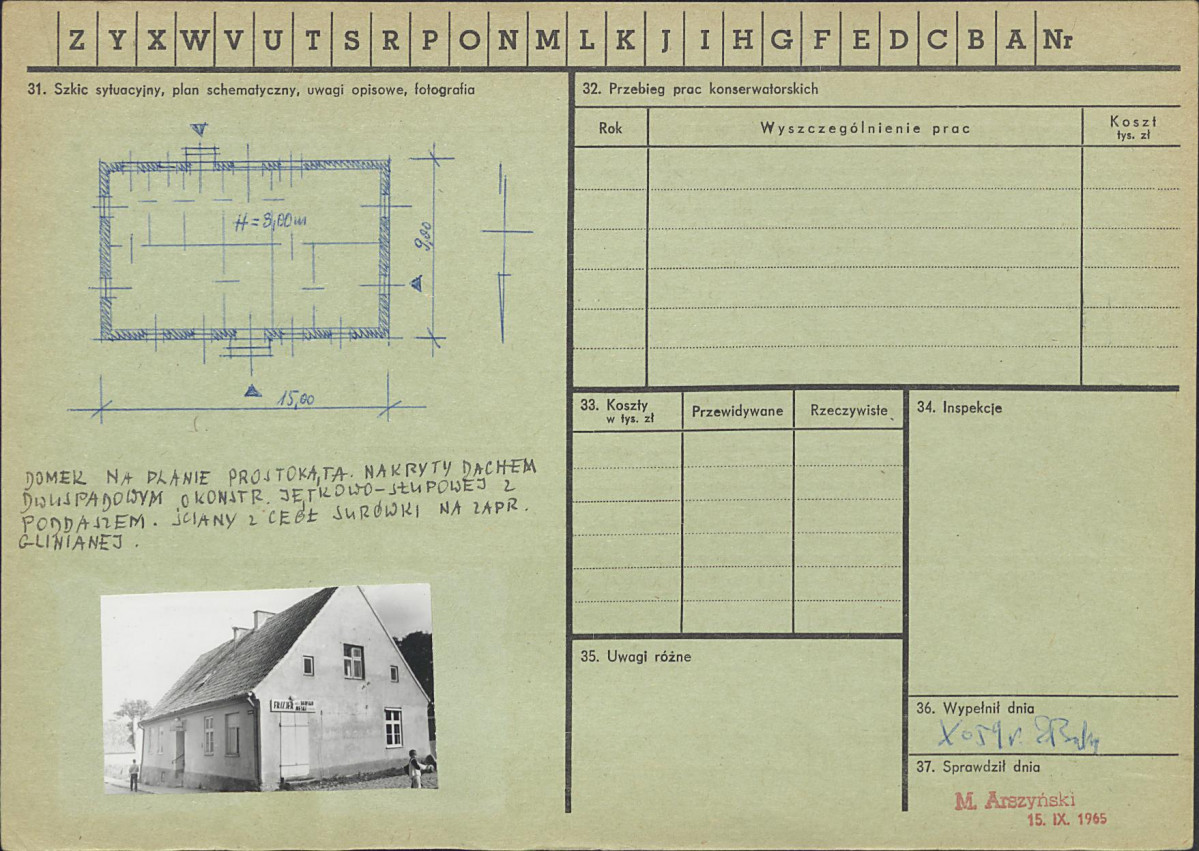 Z Y X W V U T S R P O N M L K J I H G F E D C B A Nr
31. Szkic sytuacyjny, plan schematyczny, uwagi opisowe, fotografia
H = 8,00 m
9,00
15,00
DOMEK NA PLANIE PROSTOKĄTA. NAKRYTY DACHEM
DWUSPADOWYM O KONSTR. JĘTKOWO-SŁUPOWEJ Z
PODDASZEM. ŚCIANY Z CEGŁ SURÓWKI NA ZAPR.
GLINIANEJ.
FRYZJER
32. Przebieg prac konserwatorskich
Rok
Wyszczególnienie prac
Koszt
tys. zł
33. Koszty
w tys. zł
Przewidywane
Rzeczywiste
34. Inspekcje
35. Uwagi różne
36. Wypełnił dnia
X 59 r.
37. Sprawdził dnia
M. Arszyński
15. IX. 1965